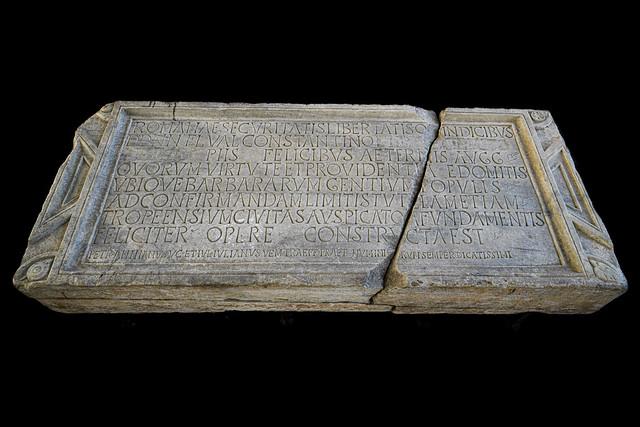 ROMANAE SECVRITATIS LIBERTATISQ VINDICIBVS
ET FL VAL CONSTANTINO
PIIS FELICIBVS AETERNIS AVGG
QVORVM VIRTVTE ET PROVIDENTIA EDOMITIS
VBIQVE BARBARARVM GENTIVM POPVLIS
AD CONFIRMANDAM LIMITIS TVTELAM ETIAM
TROPEENSIVM CIVITAS AVSPICATO A FVNDAMENTIS
FELICITER OPERE CONSTRVCTA EST
PETR ANNIANVS V C ET IVL IVLIANVS V EM PRAEF PRAET NVMINI EORVM SEMPER DICATISSIMI